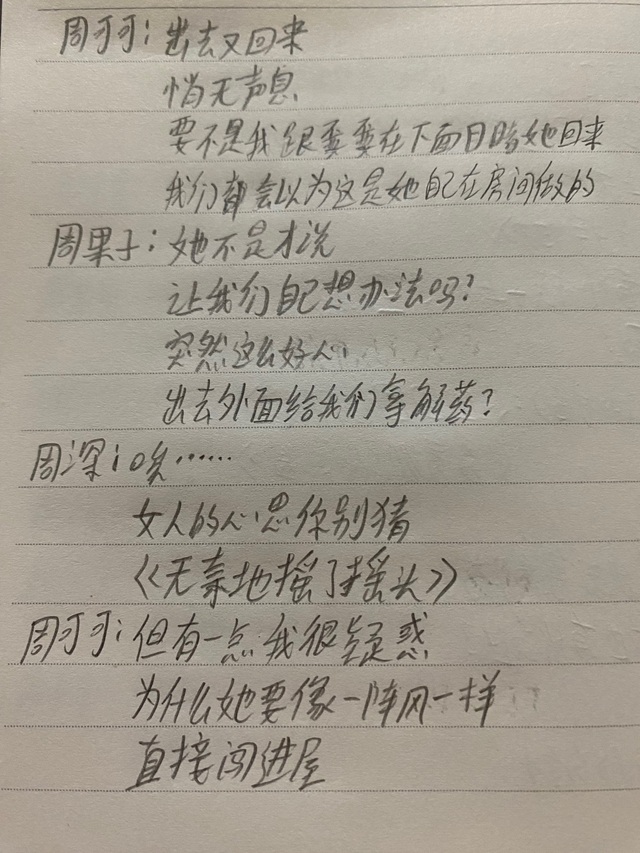 周可可：出去又回来
悄无声息
要不是我跟雯雯在下面目睹她回来
我们都会以为这是她自己在房间做的
周果子：她不是才说
让我们自己想办法吗？
突然这么好心
出去外面给我们拿解药？
周深：唉……
女人的心思你别猜
《无奈地摇了摇头》
周可可：但有一点我很疑惑
为什么她要像一阵风一样
直接闯进屋